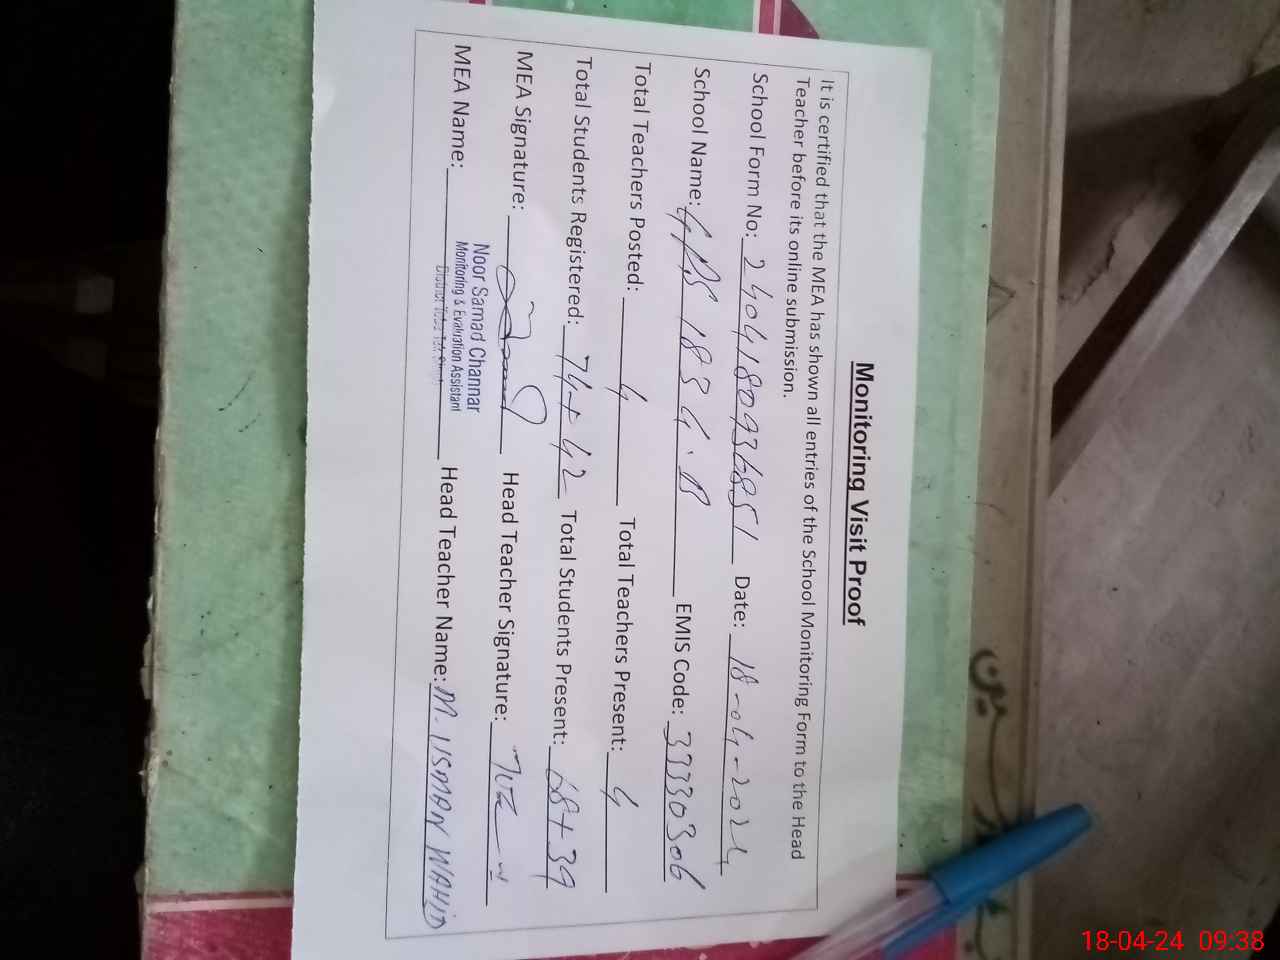 Monitoring Visit Proof
It is certified that the MEA has shown all entries of the School Monitoring Form to the Head
Teacher before its online submission.
School Form No: 2404180936851 Date: 18-04-2024
School Name: GPS 183 G.B EMIS Code: 33330306
Total Teachers Posted: 4 Total Teachers Present: 4
Total Students Registered: 74+42 Total Students Present: 68+39
MEA Signature: Head Teacher Signature:
MEA Name: Noor Samad Channar Head Teacher Name: M. USMAN WAHID
Monitoring & Evaluation Assistant
District Toba Tek Singh
18-04-24 09:38